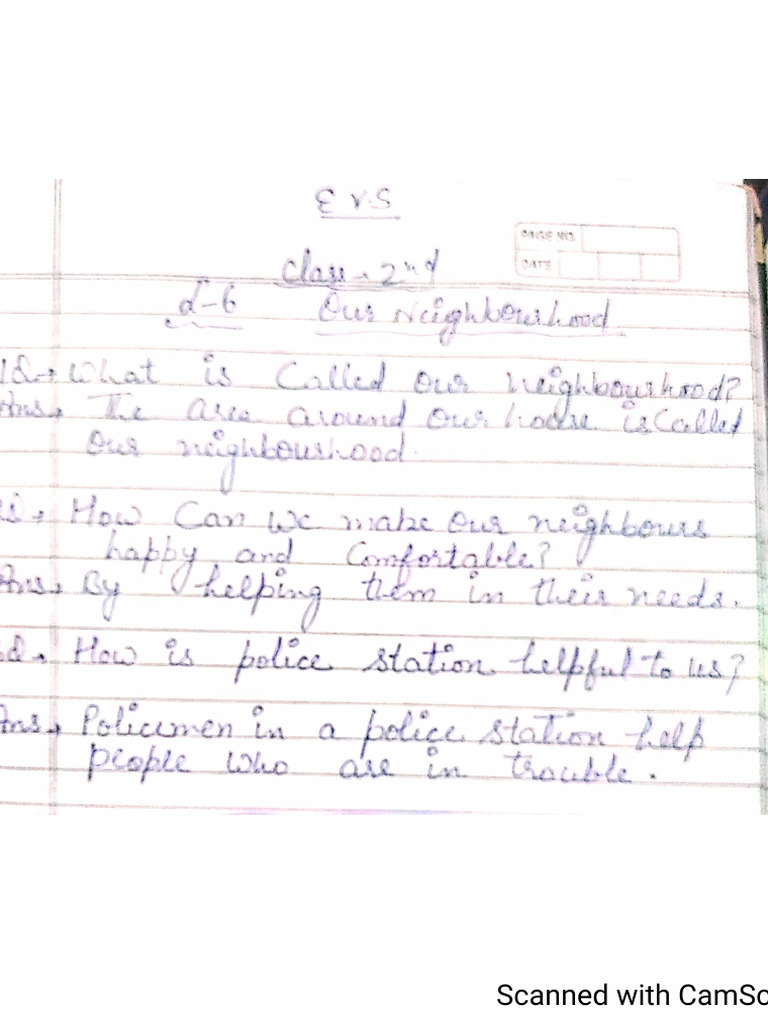 E V S
PAGE NO.
DATE
Class - 2nd
L-6 Our Neighbourhood
1Q→ What is Called our neighbourhood?
Ans→ The area around our house is Called
our neighbourhood.
How Can we make our neighbours
happy and Comfortable?
Ans→ By helping them in their needs.
Q. How is police station helpful to us?
Ans→ Policemen in a police station help
people who are in trouble.
Scanned with CamSc